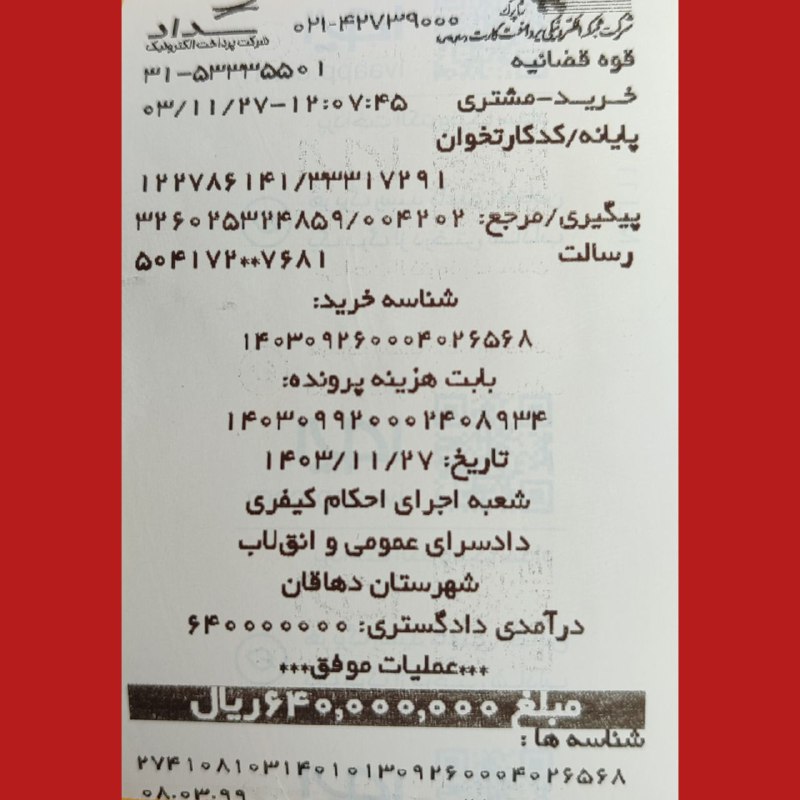 سداد
شرکت پرداخت الکترونیک
۰۲۱-۴۲۷۳۹۰۰۰
قوه قضائیه
۳۱-۵۳۲۳۵۵۰۱
خرید-مشتری ۰۳/۱۱/۲۷-۱۲:۰۷:۴۵
پایانه/کدکارتخوان
۱۲۲۷۸۶۱۴۱/۳۳۳۱۷۲۹۱
پیگیری/مرجع: ۳۲۶۰۲۵۳۲۴۸۵۹/۰۰۴۲۰۲
رسالت ۵۰۴۱۷۲**۷۶۸۱
شناسه خرید:
۱۴۰۳۰۹۲۶۰۰۰۴۰۲۶۵۶۸
بابت هزینه پرونده:
۱۴۰۳۰۹۹۲۰۰۰۲۴۰۸۹۳۴
تاریخ: ۱۴۰۳/۱۱/۲۷
شعبه اجرای احکام کیفری
دادسرای عمومی و انق‌لاب
شهرستان دهاقان
درآمدی دادگستری: ۶۴۰۰۰۰۰۰۰
***عملیات موفق***
مبلغ ۶۴۰,۰۰۰,۰۰۰ریال
شناسه ها :
۲۷۴۱۰۸۱۰۳۱۴۰۱۰۱۳۰۹۲۶۰۰۰۴۰۲۶۵۶۸
۰۸.۰۳.۹۹